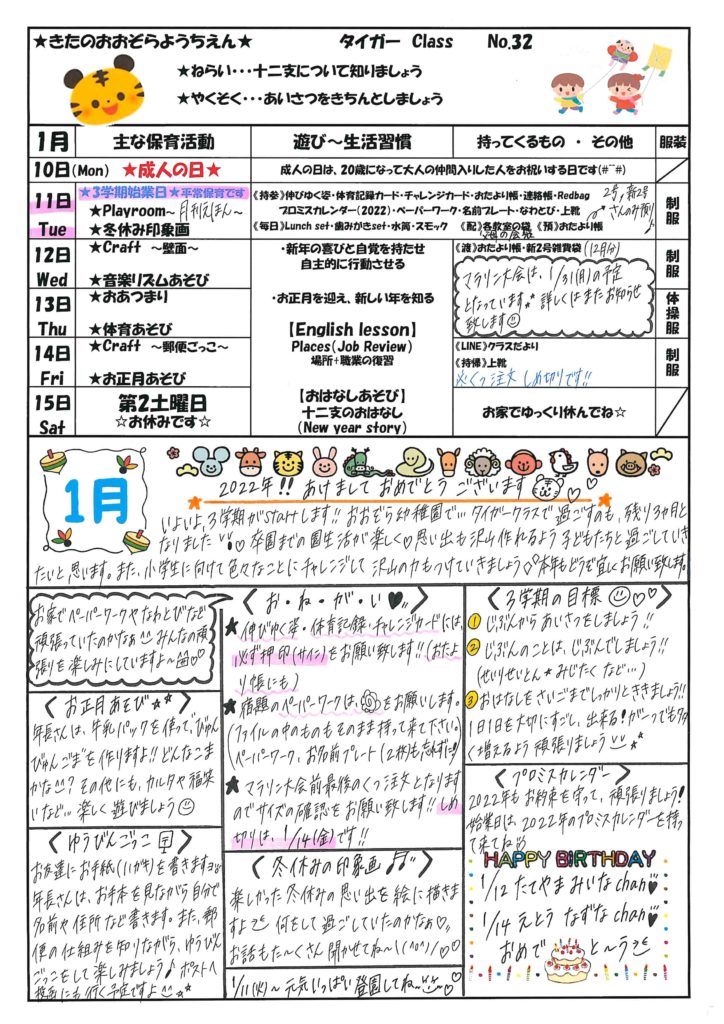 ★きたのおおぞらようちえん★ タイガー Class No.32
★ねらい・・・十二支について知りましょう
★やくそく・・・あいさつをきちんとしましょう
1月 主な保育活動 遊び～生活習慣 持ってくるもの ・ その他 服装
10日(Mon) ★成人の日★ 成人の日は、20歳になって大人の仲間入りした人をお祝いする日です(#^^#)
11日 Tue
★3学期始業日★平常保育です
★Playroom～月刊えほん～
★冬休み印象画
《持参》伸びゆく姿・体育記録カード・チャレンジカード・おたより帳・連絡帳・Redbag
プロミスカレンダー(2022)・ペーパーワーク・名前プレート・なわとび・上靴
《毎日》Lunch set・歯みがきset・水筒・スモック 《配》各教室の袋 《預》おたより帳
2号,新2号
さんのみ預り♪
制服
12日 Wed
★Craft ～壁面～
★音楽リズムあそび
・新年の喜びと自覚を持たせ
自主的に行動させる
《渡》おたより帳・新2号雑費袋(12月分)
制服
マラソン大会は、1/31(月)の予定
となっています。★詳しくはまたお知らせ
致します☺
13日 Thu
★おあつまり
★体育あそび
・お正月を迎え、新しい年を知る
体操服
【English lesson】
Places(Job Review)
場所+職業の復習
14日 Fri
★Craft ～郵便ごっこ～
★お正月あそび
《LINE》クラスだより
《持帰》上靴
※くつ注文 しめ切りです!!
制服
15日 Sat
第2土曜日
☆お休みです☆
【おはなしあそび】
十二支のおはなし
(New year story)
お家でゆっくり休んでね☆
1月
★2022年!! あけまして おめでとう ございます♡♡★
いよいよ、3学期がstartします!!おおぞら幼稚園で…タイガークラスで過ごすのも、残り3ヵ月と
なりました!♡卒園までの園生活が楽しく♡思い出も沢山作れるよう子どもたちと過ごしていき
たいと思います。また、小学生に向けて色々なことにチャレンジして沢山の力もつけていきましょう♡♡本年もどうぞ宜しくお願い致します。
お家でペーパーワークやなわとびなど
頑張っていたのかなぁ^^みんなの頑
張りを楽しみにしていますよ～♡♡
〈お正月あそび★★〉
年長さんは、牛乳パックを使って、“びゅん
びゅんごま”を作りますよ!!どんなこま
かな^^?その他にも、カルタや福笑
いなど…楽しく遊びましょう☺
〈ゆうびんごっこ〒〉
お友達にお手紙(ハガキ)を書きますよ
年長さんは、お手本を見ながら自分で
名前や住所など書きます。また、郵
便の仕組みを知りながら、ゆうびん
ごっこをして楽しみましょう♪ ポストへ
投函にも行く予定ですよ☺
〈お・ね・が・い♥〉
★伸びゆく姿・体育記録・チャレンジカードには、
必ず押印(サイン)をお願い致します!!(おたよ
り帳にも)
★宿題のペーパーワークは、をお願いします。
(ファイルの中のものもそのまま持って来て下さい。)
ペーパーワーク、お名前プレート(2枚)も忘れずに!
★マラソン大会前最後のくつ注文となります
のでサイズの確認をお願い致します!!しめ
切りは、1/14(金)です!!
〈冬休みの印象画♪♪〉
楽しかった冬休みの思い出を絵に描きま
すよ 何をして過ごしていたのかなぁ♡
お話もた～くさん聞かせてね～\(^o^)/♡♡
1/11(火)～元気いっぱい登園してね～♡
〈3学期の目標☺♡♡〉
①じぶんからあいさつをしましょう!!
②じぶんのことは、じぶんでしましょう!!
(せいりせいとん★みじたくなど…)
③おはなしをさいごまでしっかりとききましょう!!
1日1日を大切にすごし、出来る!が一つでも多
く増えるよう頑張りましょう★★
〈プロミスカレンダー〉
2022年もお約束を守って、頑張りましょう!
始業日は、2022年のプロミスカレンダーを持っ
て来てね
HAPPY BiRTHDAY
1/12 たてやま みいなchan♥
1/14 えとう なずなchan♥
おめで と～う